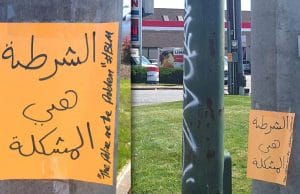 الشرطة
هي
المشكلة
"The Police are the Problem" #BLM
الشرطة
هي
المشكلة